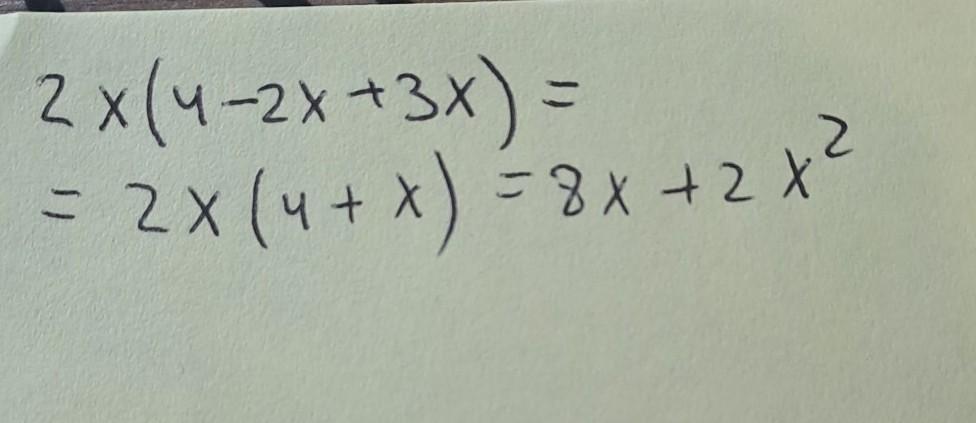 2x(4-2x+3x)=
=2x(4+x)=8x+2x²